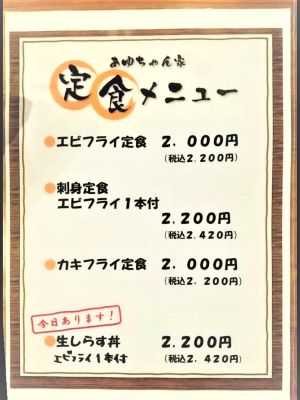 あゆちゃん家
定食メニュー
エビフライ定食 2,000円
(税込2,200円)
刺身定食
エビフライ1本付
2,200円
(税込2,420円)
カキフライ定食 2,000円
(税込2,200円)
今日あります!
生しらす丼 2,200円
エビフライ1本付 (税込2,420円)